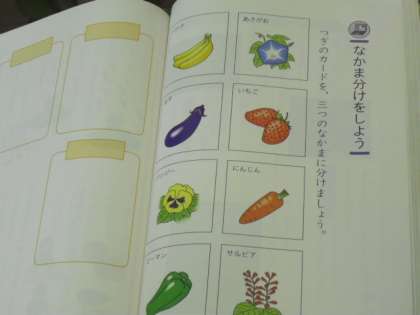 なかま分けをしよう
つぎのカードを、三つのなかまに分けましょう。
あさがお
いちご
にんじん
サルビア